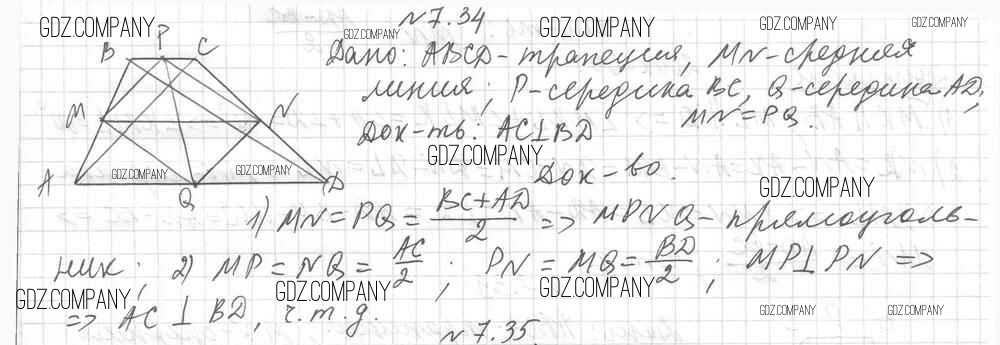 GDZ.COMPANY GDZ.COMPANY GDZ.COMPANY GDZ.COMPANY GDZ.COMPANY
№7.34
B P C
Дано: ABCD - трапеция, MN - средняя
линия; P - середина BC, Q - середина AD,
MN = PQ.
M N
Док-ть: AC⊥BD
GDZ.COMPANY
GDZ.COMPANY GDZ.COMPANY
Док-во.
A Q D
GDZ.COMPANY
1) MN = PQ = (BC+AD)/2 => MPNQ - прямоуголь-
ник; 2) MP = NQ = AC/2; PN = MQ = BD/2; MP⊥PN =>
GDZ.COMPANY GDZ.COMPANY GDZ.COMPANY
=> AC ⊥ BD, ч.т.д.
GDZ.COMPANY GDZ.COMPANY
№7.35.